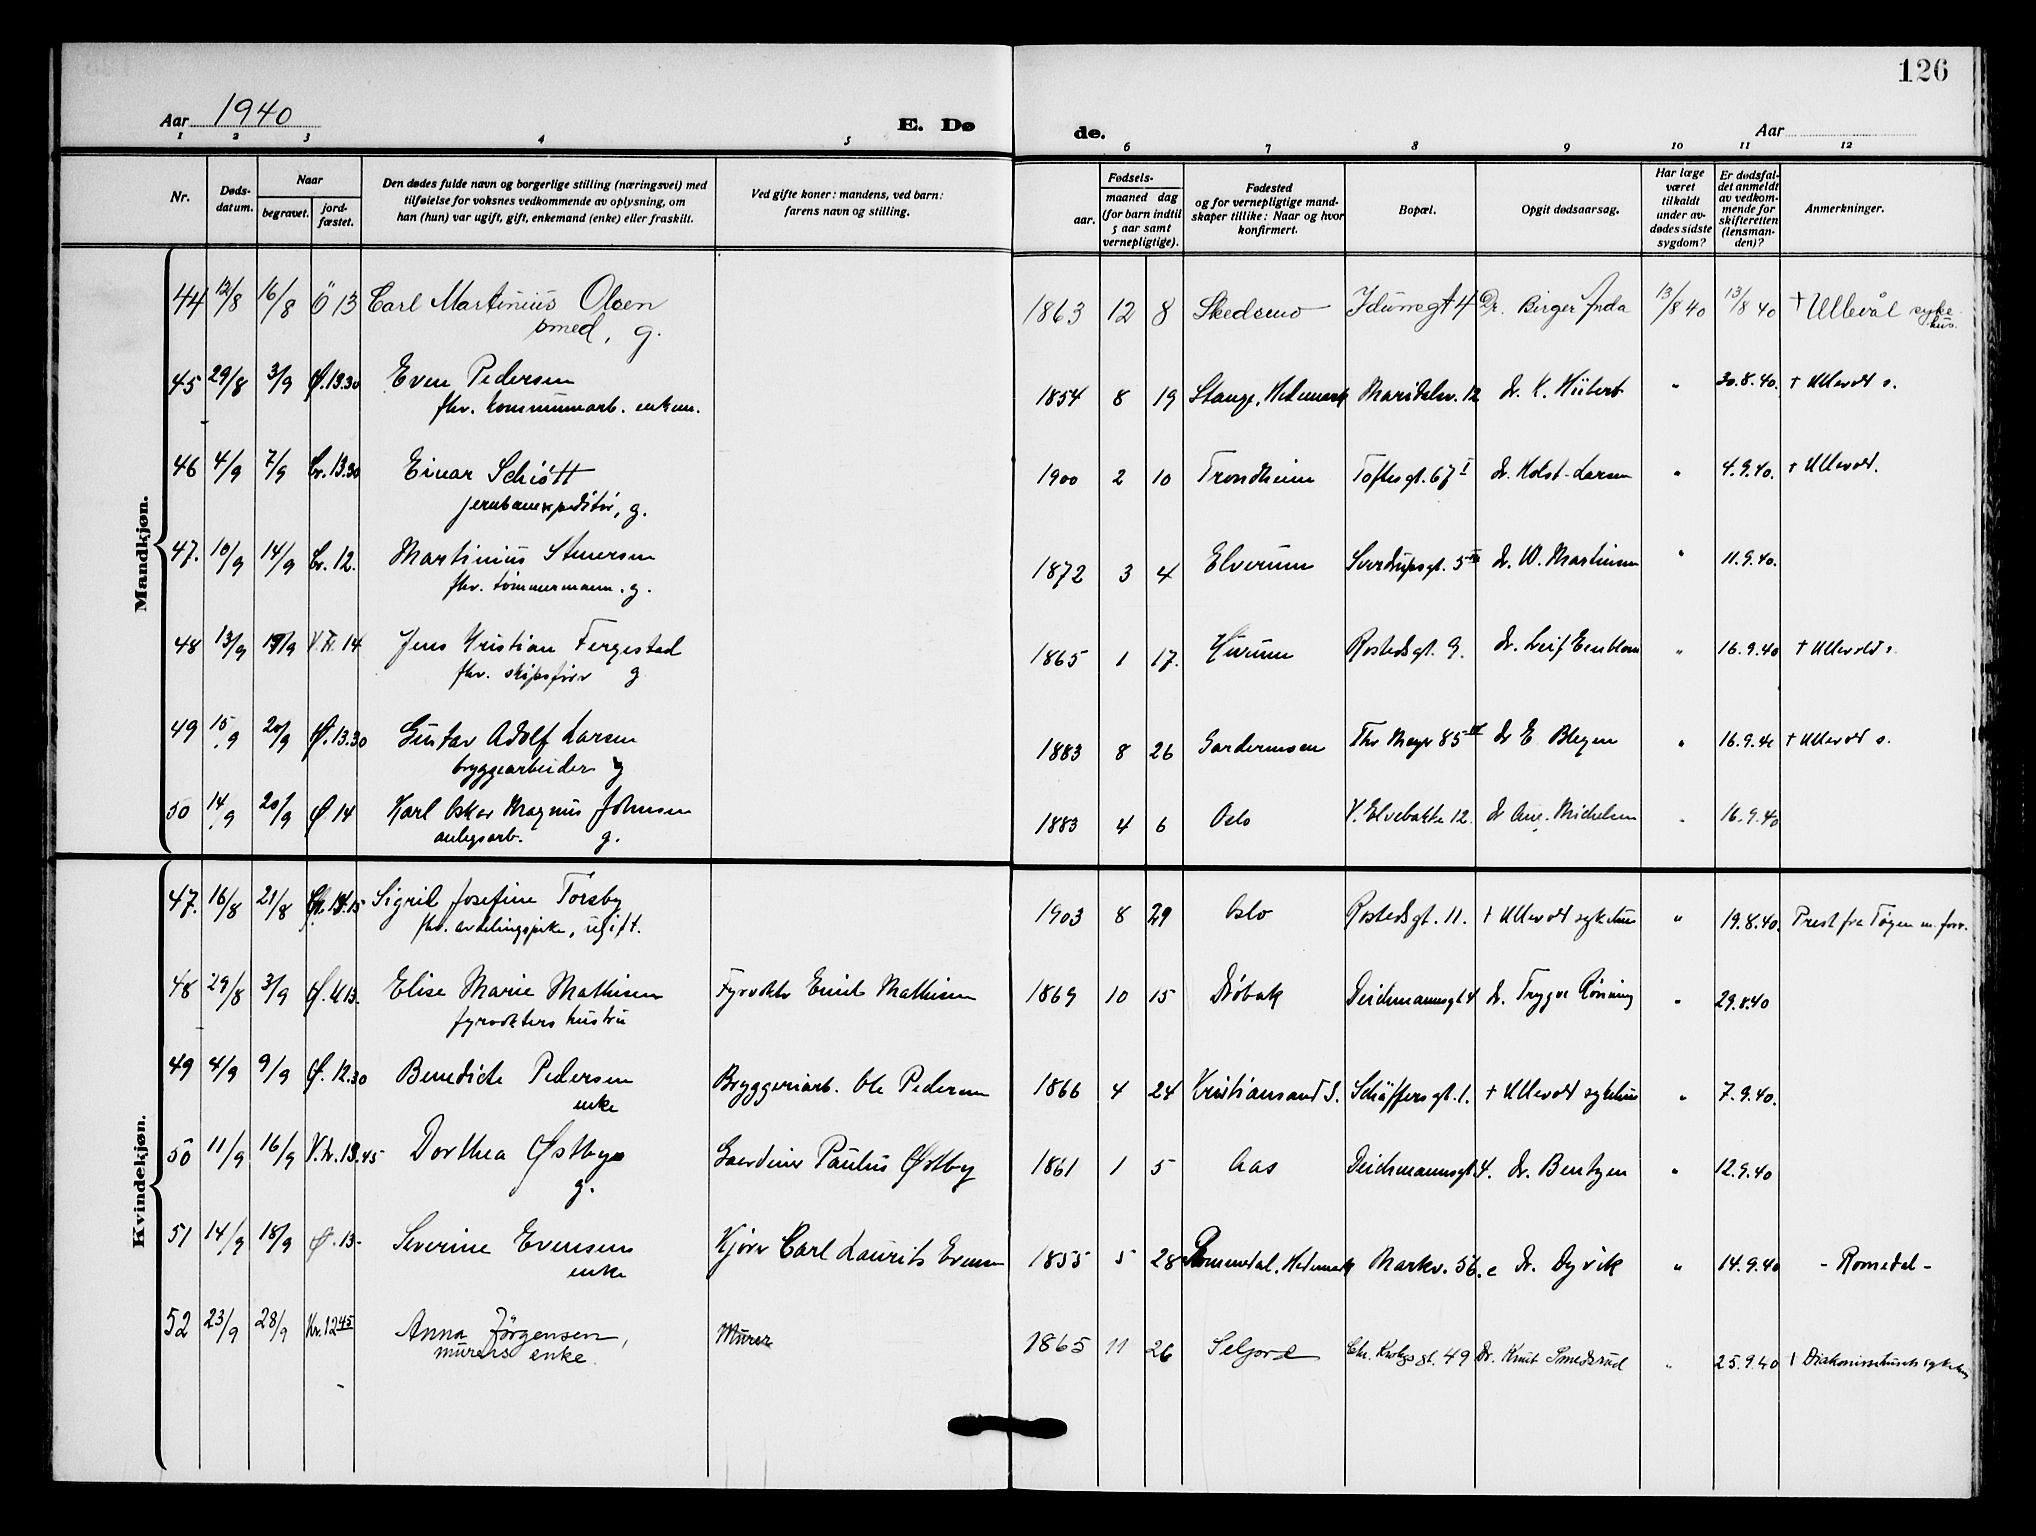 126
Aar 1940
E. Dø
de.
Aar
1 2 3 4 5 6 7 8 9 10 11 12
Nr.
Døds-
datum.
Naar
begravet.
jord-
fæstet.
Den dødes fulde navn og borgerlige stilling (næringsvei) med
tilføielse for voksnes vedkommende av oplysning, om
han (hun) var ugift, gift, enkemand (enke) eller fraskilt.
Ved gifte koner: mandens, ved barn:
farens navn og stilling.
Fødsels-
aar.
maaned dag
(for barn indtil
5 aar samt
vernepligtige).
Fødested
og for vernepligtige mand-
skaper tillike: Naar og hvor
konfirmert.
Bopæl.
Opgit dødsaarsag.
Har læge
været
tilkaldt
under av-
dødes sidste
sygdom?
Er dødsfal-
det anmeldt
av vedkom-
mende for
skifteretten
(lensman-
den)?
Anmerkninger.
Mandkjøn.
44 12/8 16/8 Ö 13 Carl Martinius Olsen 1863 12 8 Skedsmo Idunsgt 4 Dr. Birger 13/8 40 13/8 40 + Ullevål syke-
hus.
smed, g.
45 29/8 3/9 Ø. 13.30 Even Pedersen 1854 8 19 Stange, Hedemark Maridalsv. 12 dr. K. Hiibert " 30.8.40. + Ullevål s.
fhv. kommunearb. enkem.
46 4/9 7/9 Cr. 13.30 Einar Schiøtt 1900 2 10 Trondheim Toftesgt. 67 I dr. Holst-Larsen " 4.9.40. + Ullevål.
jernbaneexpeditør, g.
47. 10/9 14/9 Cr. 12. Martinius Stenersen 1872 3 4 Elverum Sverdrupsgt. 5 dr. W. Martinsen " 11.9.40.
fhv. tømmermann. g.
48 13/9 19/9 V. Kr. 14 Jens Kristian Fergestad 1865 1 17. Hurum Rostedsgt. 9. dr. Leif Ecublom " 16.9.40 + Ullevål s.
fhv. skipsfører g
49 15/9 20/9 Ø. 13.30 Gustav Adolf Larsen 1883 8 26 Gardermoen Thv Meyer 85 dr E Blegen " 16.9.40 + Ullevål s.
bryggearbeider g
50 14/9 20/9 Ø 14 Karl Oskar Magnus Johnsen 1883 4 6 Oslo V. Elvebakke 12. dr Aug. Michelsen " 16.9.40
anlegsarb. g.
Kvindekjøn.
47. 16/8 21/8 Sigrid Josefine Torsby 1903 8 29 Oslo Rostedsgt. 11. + Ullevål sykehus " 19.8.40. Prest fra Tøyen m. forr.
fhv. avdelingspike, ugift.
48 29/8 3/9 Ø. 13. Elise Marie Mathisen Fyrvokter Emil Mathisen 1869 10 15 Drøbak Deichmannsgt 4 dr. Trygve Rønning " 29.8.40
fyrvokters hustru
49 4/9 9/9 Ø. 12.30 Benedicte Pedersen Bryggeriarb. Ole Pedersen 1866 4 24 Kristiansand S. Schäffersgt. 1. + Ullevål sykehus " 7.9.40.
enke
50 11/9 16/9 V. Kr. 13.45 Dorthea Østbye Gaardeier Paulus Østby 1861 1 5 Aas Deichmannsgt 4. Dr. Bentzen " 12.9.40
g.
51 14/9 18/9 Ø. 13- Severine Evensen Kjører Carl Laurits Evensen 1855 5 28 Rommedal, Hedemark Markv. 56. c Dr. Dyvik " 14.9.40 - Romedal -
enke
52 23/9 28/9 Kr. 12 45 Anna Jörgensen, Murer 1865 11 26 Seljord Chr. Krohgs gt. 49 Dr. Knut Smedsrud " 25.9.40 + Diakonissehusets sykehus
murers enke.